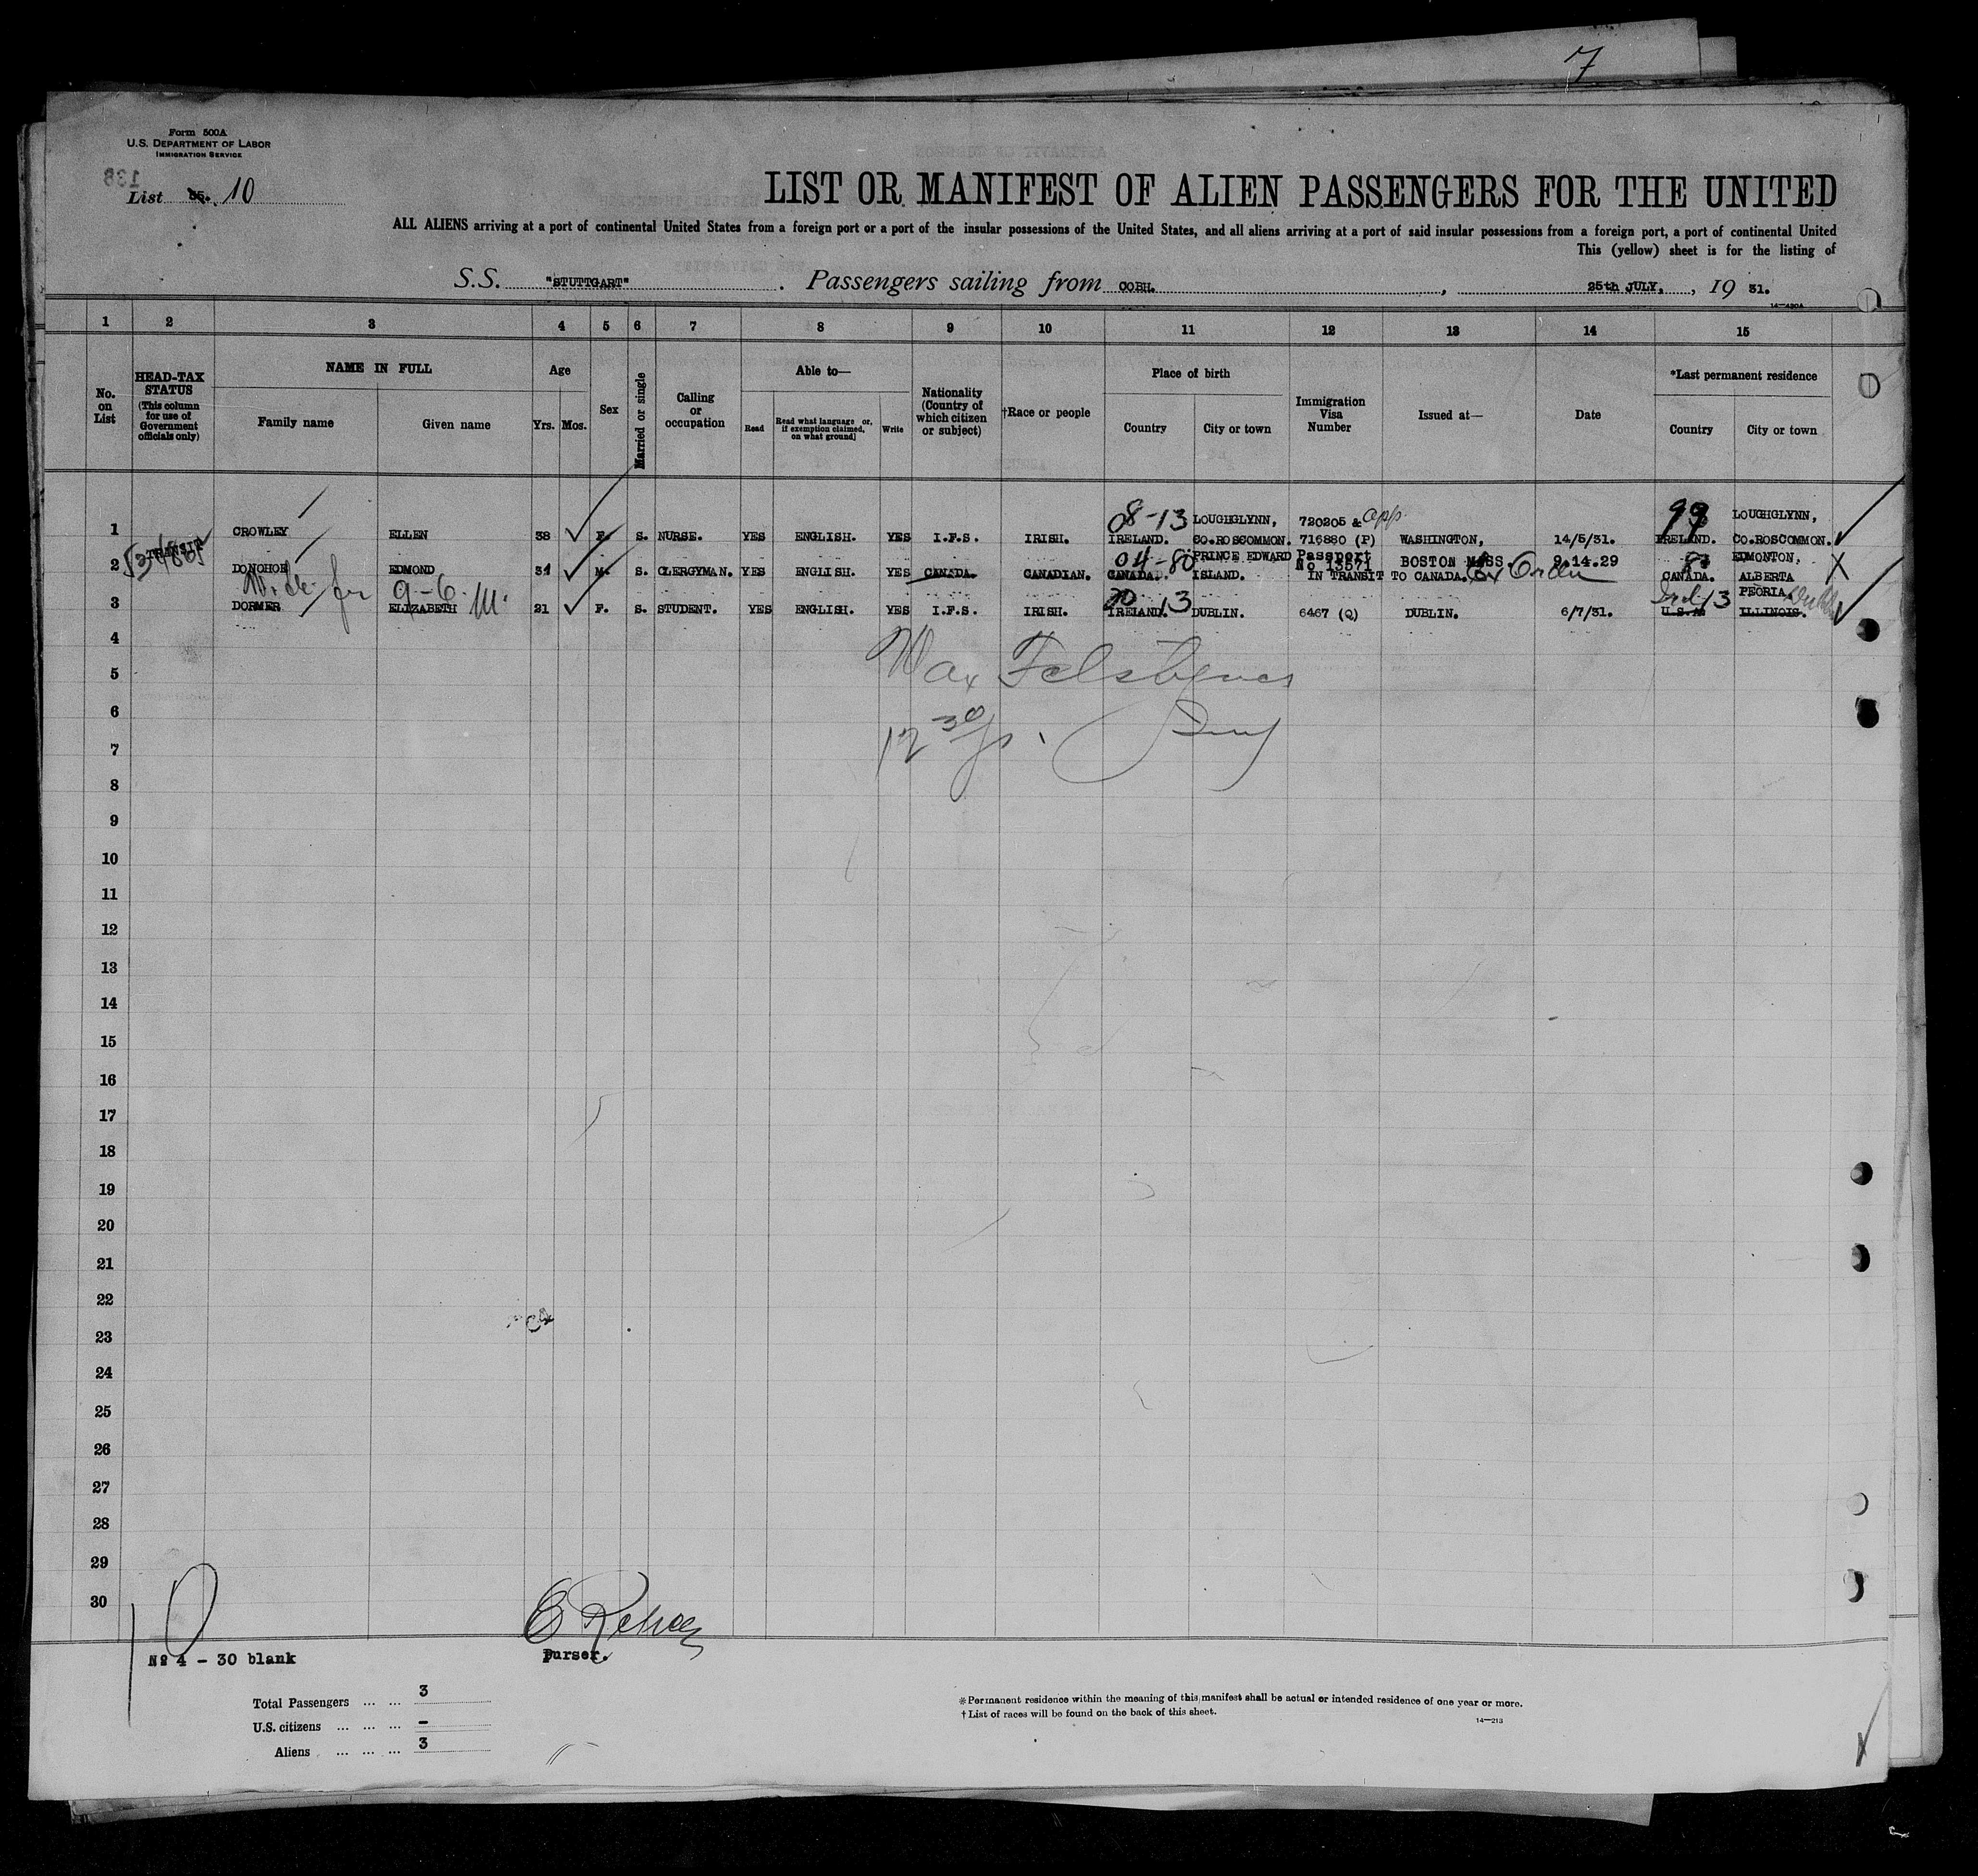 7
Form 500A
U.S. DEPARTMENT OF LABOR
IMMIGRATION SERVICE
138
List 10
LIST OR MANIFEST OF ALIEN PASSENGERS FOR THE UNITED
ALL ALIENS arriving at a port of continental United States from a foreign port or a port of the insular possessions of the United States, and all aliens arriving at a port of said insular possessions from a foreign port, a port of continental United
This (yellow) sheet is for the listing of
S.S. "STUTTGART". Passengers sailing from COBH. , 25th JULY. , 19 31.
14—420A
1 2 3 4 5 6 7 8 9 10 11 12 13 14 15
No. on List
HEAD-TAX STATUS
(This column for use of Government officials only)
NAME IN FULL
Family name Given name
Age
Yrs. Mos.
Sex
Married or single
Calling or occupation
Able to—
Read Read what language or, if exemption claimed, on what ground] Write
Nationality (Country of which citizen or subject)
†Race or people
Place of birth
Country City or town
Immigration Visa Number
Issued at—
Date
*Last permanent residence
Country City or town
08-13 LOUGHGLYNN, 720205 & app. 99 LOUGHGLYNN,
1 CROWLEY ELLEN 38 F. S. NURSE. YES ENGLISH. YES I.F.S. IRISH. IRELAND. CO.ROSCOMMON. 716880 (P) WASHINGTON, 14/5/31. IRELAND. CO.ROSCOMMON.
TRANSIT 04-80 PRINCE EDWARD Passport EDMONTON,
2 DONOHOE EDMOND 31 M. S. CLERGYMAN. YES ENGLISH. YES CANADA. CANADIAN. CANADA. ISLAND. No 13571 BOSTON MASS. 9.14.29 CANADA. ALBERTA
IN TRANSIT TO CANADA. Order
9-6. M.
20 13 Irel. 13 PEORIA,
3 DORMER ELIZABETH 21 F. S. STUDENT. YES ENGLISH. YES I.F.S. IRISH. IRELAND. DUBLIN. 6467 (Q) DUBLIN. 6/7/31. U.S.A. ILLINOIS.
4
5
Max
6
12 30
7
8
9
10
11
12
13
14
15
16
17
18
19
20
21
22
23
24
25
26
27
28
29
30
10
No 4 - 30 blank
Purser.
Total Passengers ... ... 3
U.S. citizens ... ... ... –
Aliens ... ... ... 3
*Permanent residence within the meaning of this manifest shall be actual or intended residence of one year or more.
†List of races will be found on the back of this sheet.
14—213